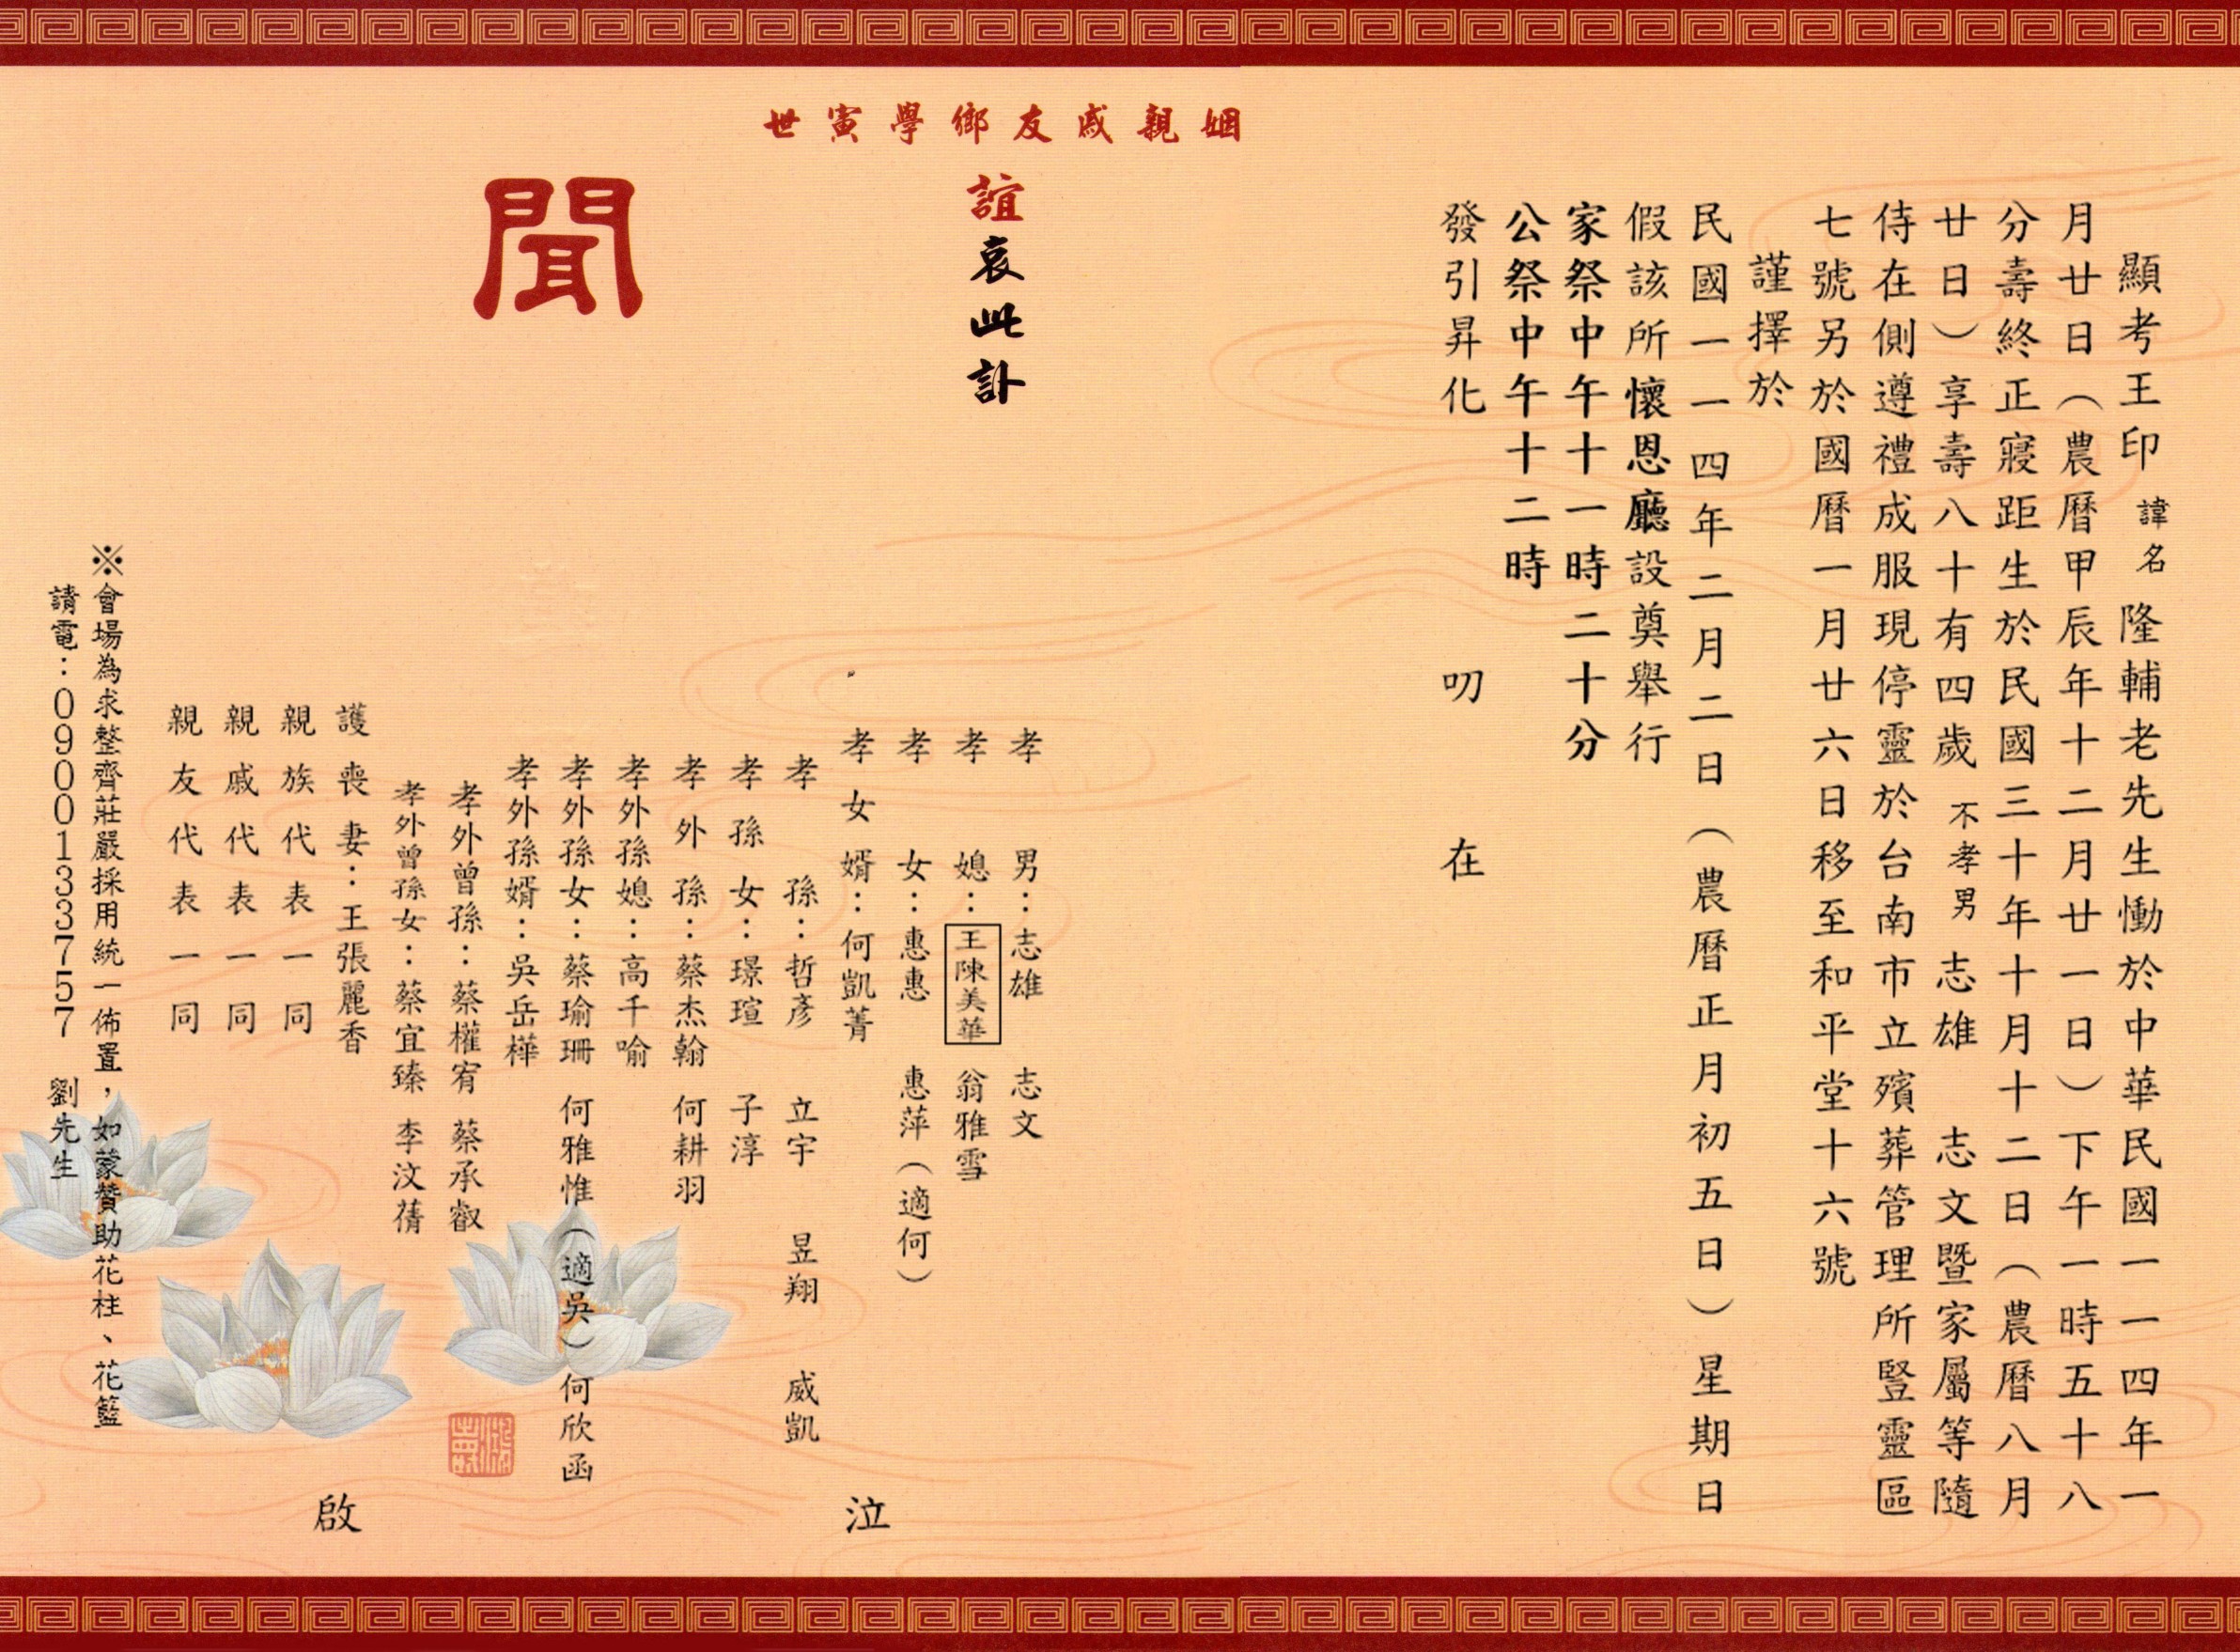 顯考王印諱名隆輔老先生慟於中華民國一一四年一
月廿日（農曆甲辰年十二月廿一日）下午一時五十八
分壽終正寢距生於民國三十年十月十二日（農曆八月
廿日）享壽八十有四歲不孝男志雄 志文暨家屬等隨
侍在側遵禮成服現停靈於台南市立殯葬管理所豎靈區
七號另於國曆一月廿六日移至和平堂十六號
謹擇於
民國一一四年二月二日（農曆正月初五日）星期日
假該所懷恩廳設奠舉行
家祭中午十一時二十分
公祭中午十二時
發引昇化 叨在
姻親戚友鄉學寅世
誼哀此訃
聞
孝男：志雄 志文
孝媳：王陳美華 翁雅雪
孝女：惠惠 惠萍（適何）
孝女婿：何凱菁
孝孫：哲彥 立宇 昱翔 威凱
孝孫女：璟瑄 子淳
孝外孫：蔡杰翰 何耕羽
孝外孫媳：高千喻
孝外孫女：蔡瑜珊 何雅惟（適吳）何欣函
孝外孫婿：吳岳樺
孝外曾孫：蔡權宥 蔡承叡
孝外曾孫女：蔡宜臻 李汶蒨
護喪妻：王張麗香
親族代表一同
親戚代表一同
親友代表一同
泣
啟
※會場為求整齊莊嚴採用統一佈置，如蒙贊助花柱、花籃
請電：0900133757 劉先生